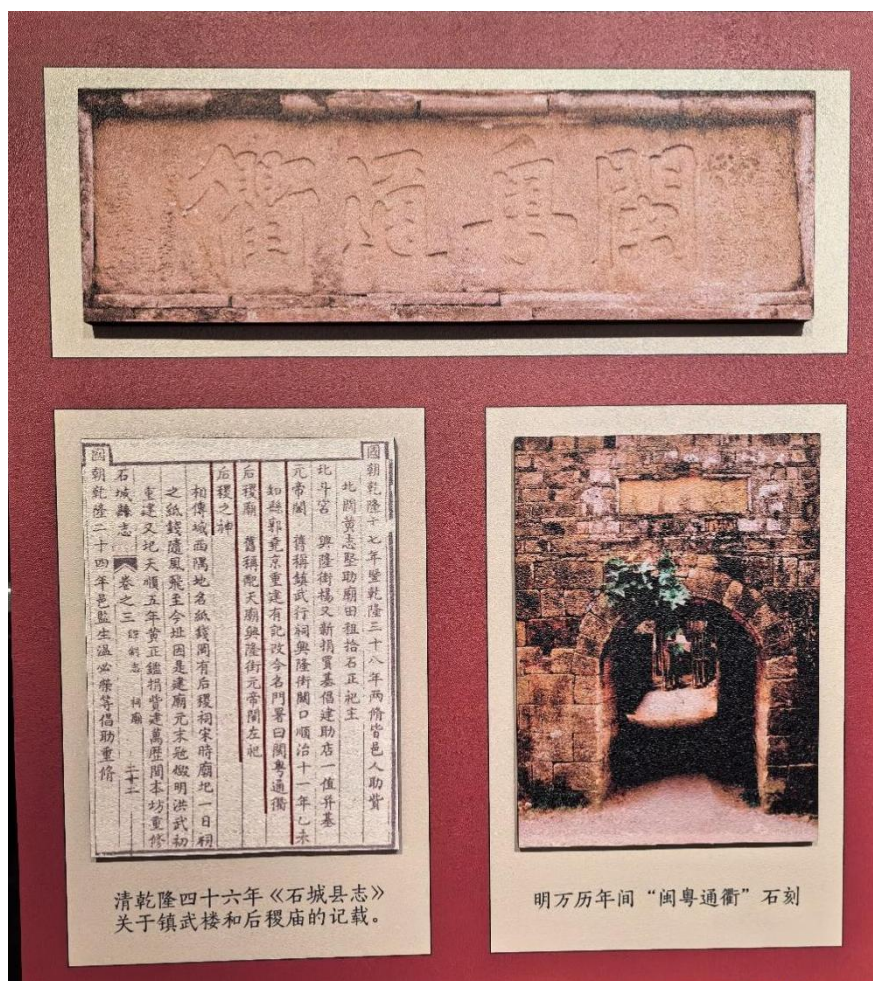 閩粤通衢
國朝乾隆十七年暨乾隆三十八年两脩皆邑人助貲
北關黄志堅助廟田租拾石正祀主
北斗宮 興隆街楊又新捐買基倡建助店一值并基
元帝閣 舊稱鎮武行祠興隆街關口順治十一年乙未
知縣郭堯京重建有記改今名門署曰閩粤通衢
后稷廟 舊稱配天廟興隆街元帝閣左祀
后稷之神
相傳城西隅地名紙錢岡有后稷祠宋時廟圯一日祠
之紙錢隨風飛至今址因是建廟元末燬明洪武初
重建又圯天順五年黄正鑑捐貲建萬歴間本坊重修
石城縣志 卷之三 經制志 祠廟 二十二
國朝乾隆二十四年邑監生温必榮等倡助重脩
清乾隆四十六年《石城县志》
关于镇武楼和后稷庙的记载。
明万历年间“闽粤通衢”石刻